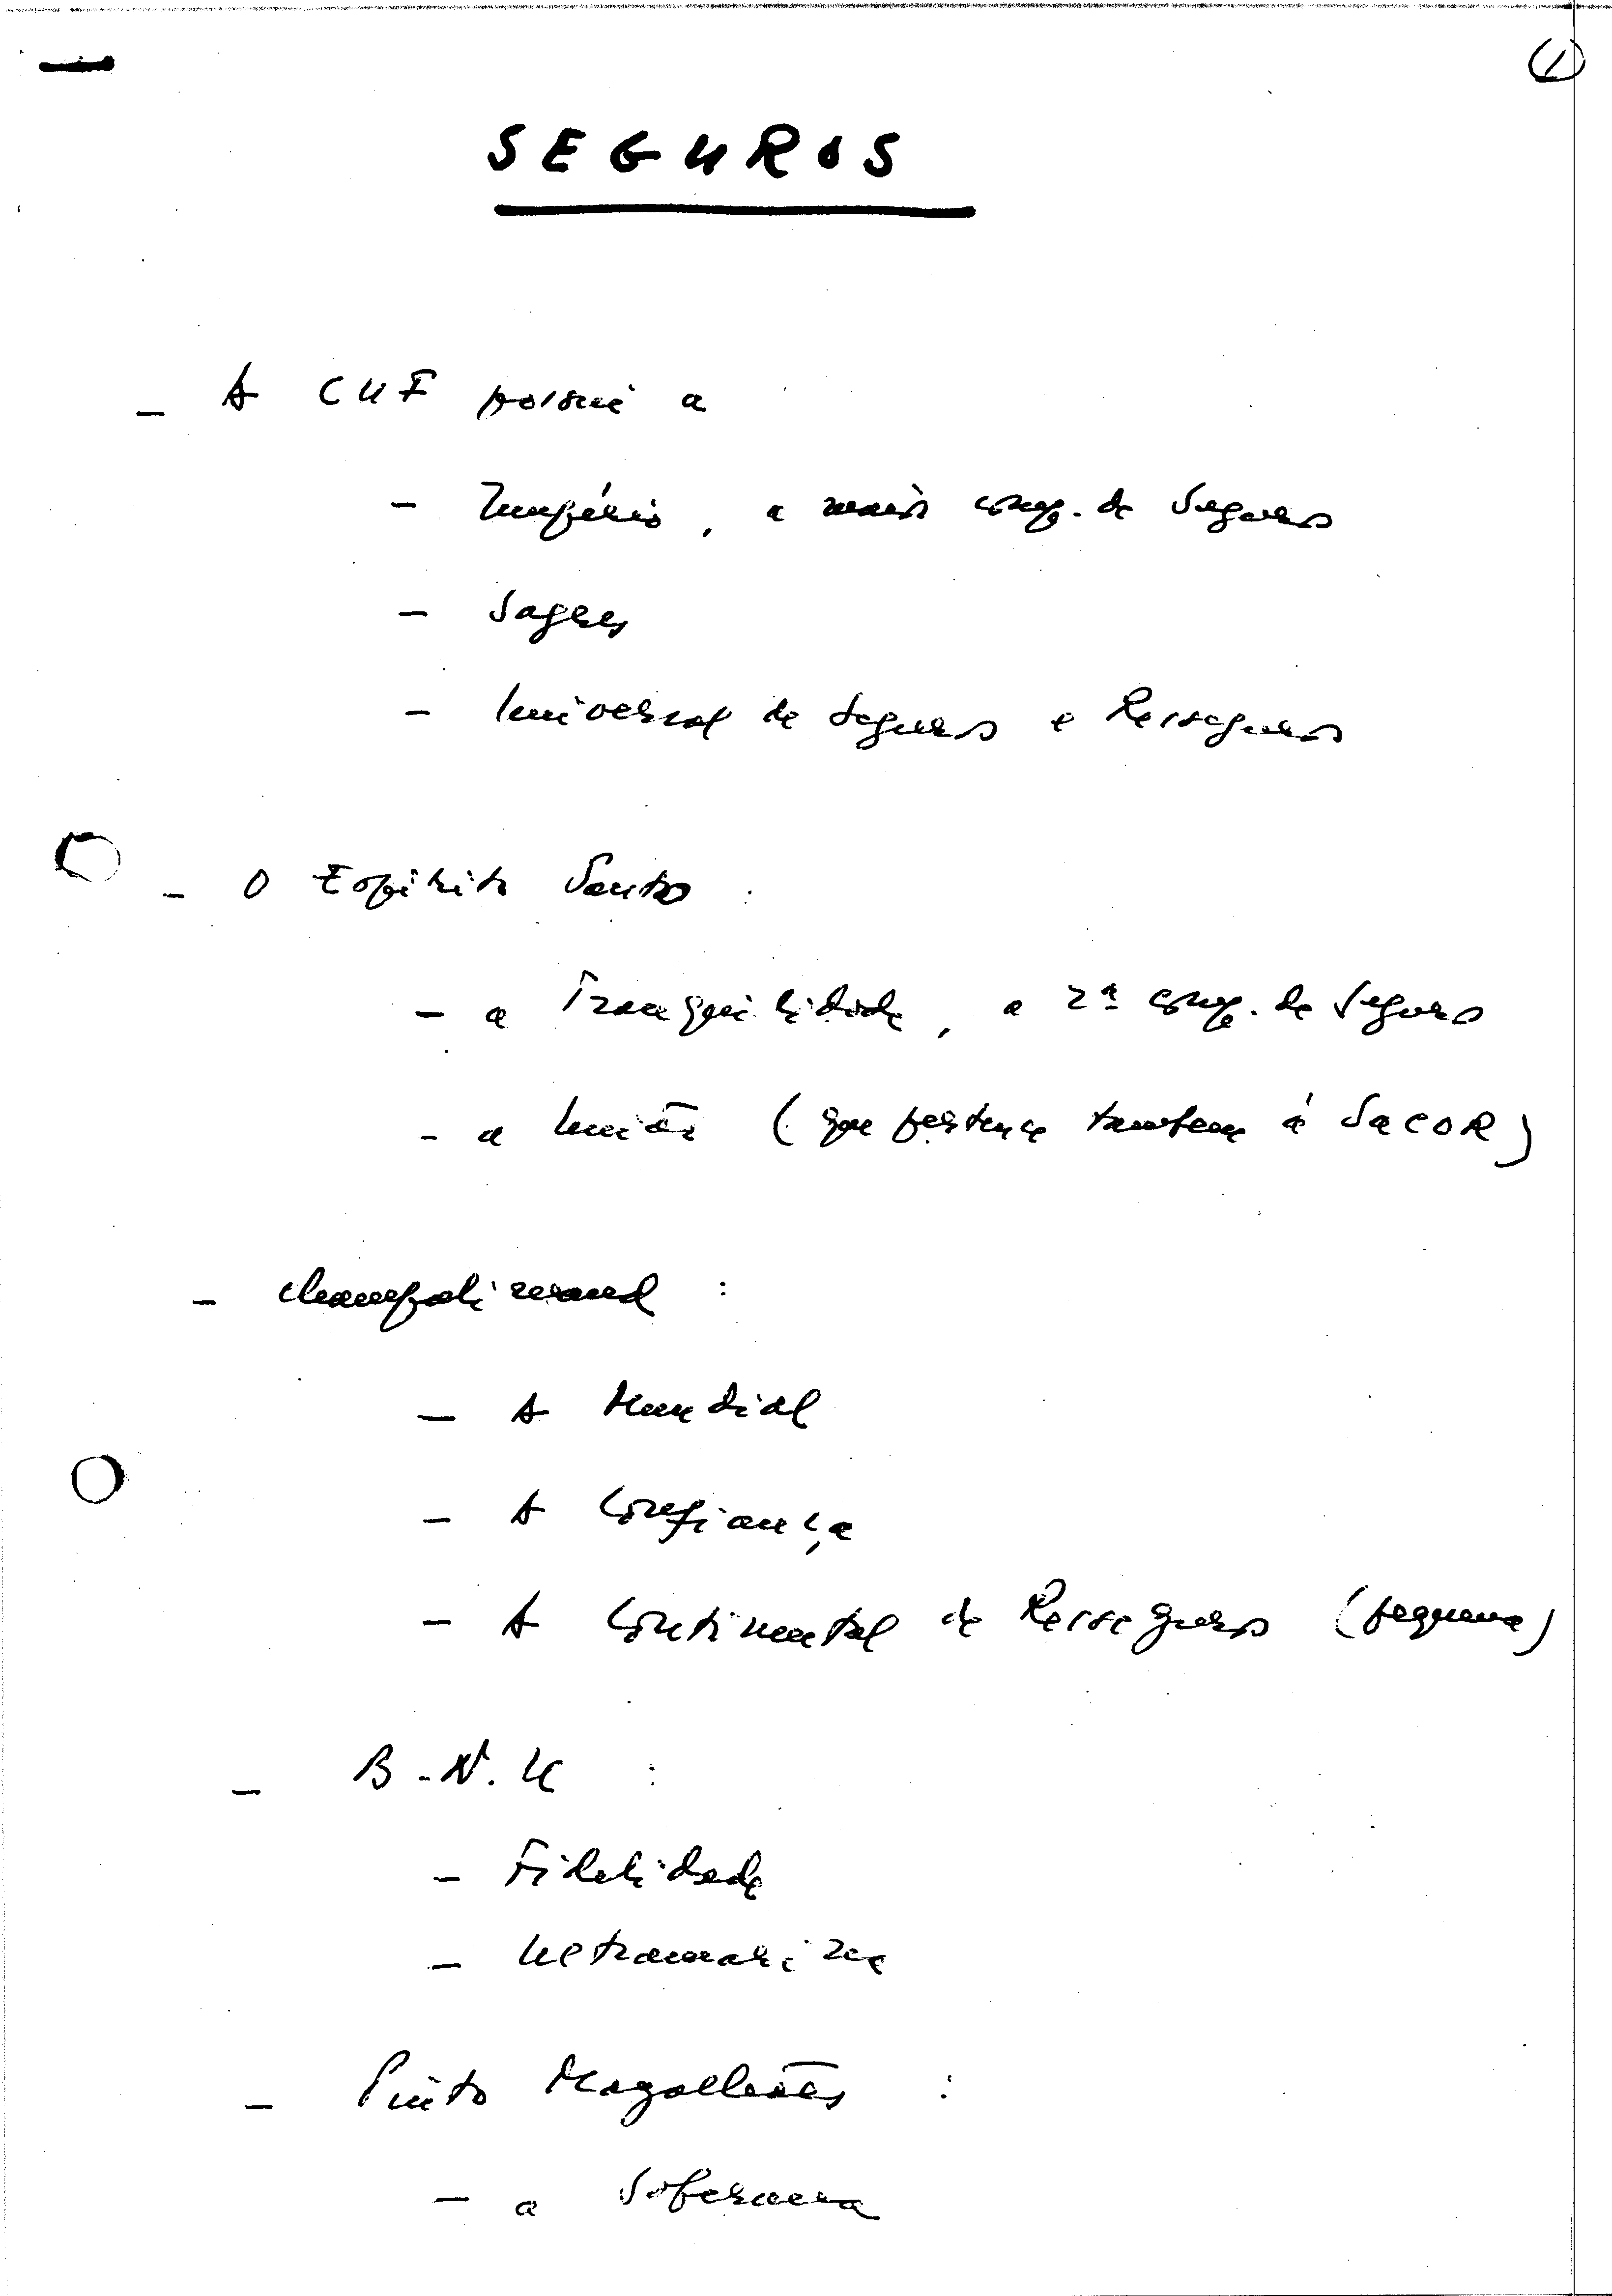 1
SEGUROS
- A CUF possui a
- Império, a maior comp. de Seguros
- Sagres
- Universal de Seguros e Resseguros
- O Espírito Santo :
- a Tranquilidade, a 2ª comp. de Seguros
- a União (que pertence também à Sacor)
- Champalimaud :
- A Mundial
- A Confiança
- A Continental de Resseguros (pequena)
- B.N.U :
- Fidelidade
- Ultramarina
- Pinto Magalhães :
- a Soberana